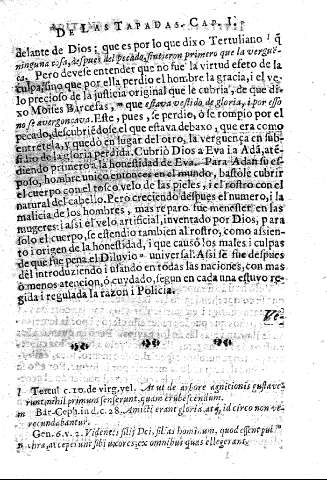 DE LAS TAPADAS. CAP. I.
delante de Dios; que es por lo que dixo Tertuliano l q
ninguna cosa, despues del pecado, sintieron primero que la verguẽ
ça. Pero devese entender que no fue la virtud efeto de la
culpa, sino que por ella perdio el hombre la gracia, i el ve
lo precioso de la justicia original que le cubria, de que di
xo Moises Barcefas, m que estava vestido de gloria, i por esso
no se avergonçava. Este, pues, se perdio, ò se rompio por el
pecado, descubriẽdose el que estava debaxo, que era como
entretela, y quedò en lugar del otro, la verguença en sub-
sidio de la gloria perdida. Cubriò Dios a Eva i a Adã, atẽ-
diendo primero a la honestidad de Eva. Para Adan su es-
poso, hombre unico entonces en el mundo, bastòle cubrir
el cuerpo con el tosco velo de las pieles, i el rostro con el
natural del cabello. Pero creciendo despues el numero, i la
malicia de los hombres, mas reparo fue menester en las
mugeres: i assi el velo artificial, inventado por Dios, para
solo el cuerpo, se estendio tambien al rostro, como assien-
to i origen de la honestidad, i que causò los males i culpas
de que fue pena el Diluvio n universal. Assi se fue despues
del introduziendo i usando en todas las naciones, con mas
ò menos atencion, ò cuydado, segun en cada una estuvo re
gida i regulada la razon i Policia.
Ve-
l Tertul. c. 10. de virg. vel. At ut de arbore agnitionis gustave
runt, nihil primum senserunt, quam erubescendum.
m Bar-Ceph. in d. c. 28. Amicti erant gloria, atq; id circo non ve
recundabantur.
n Gen. 6. v. 2. Videntes filij Dei, filias hominum, quod essent pul
chræ, acceperunt sibi uxores, ex omnibus quas elegerant.